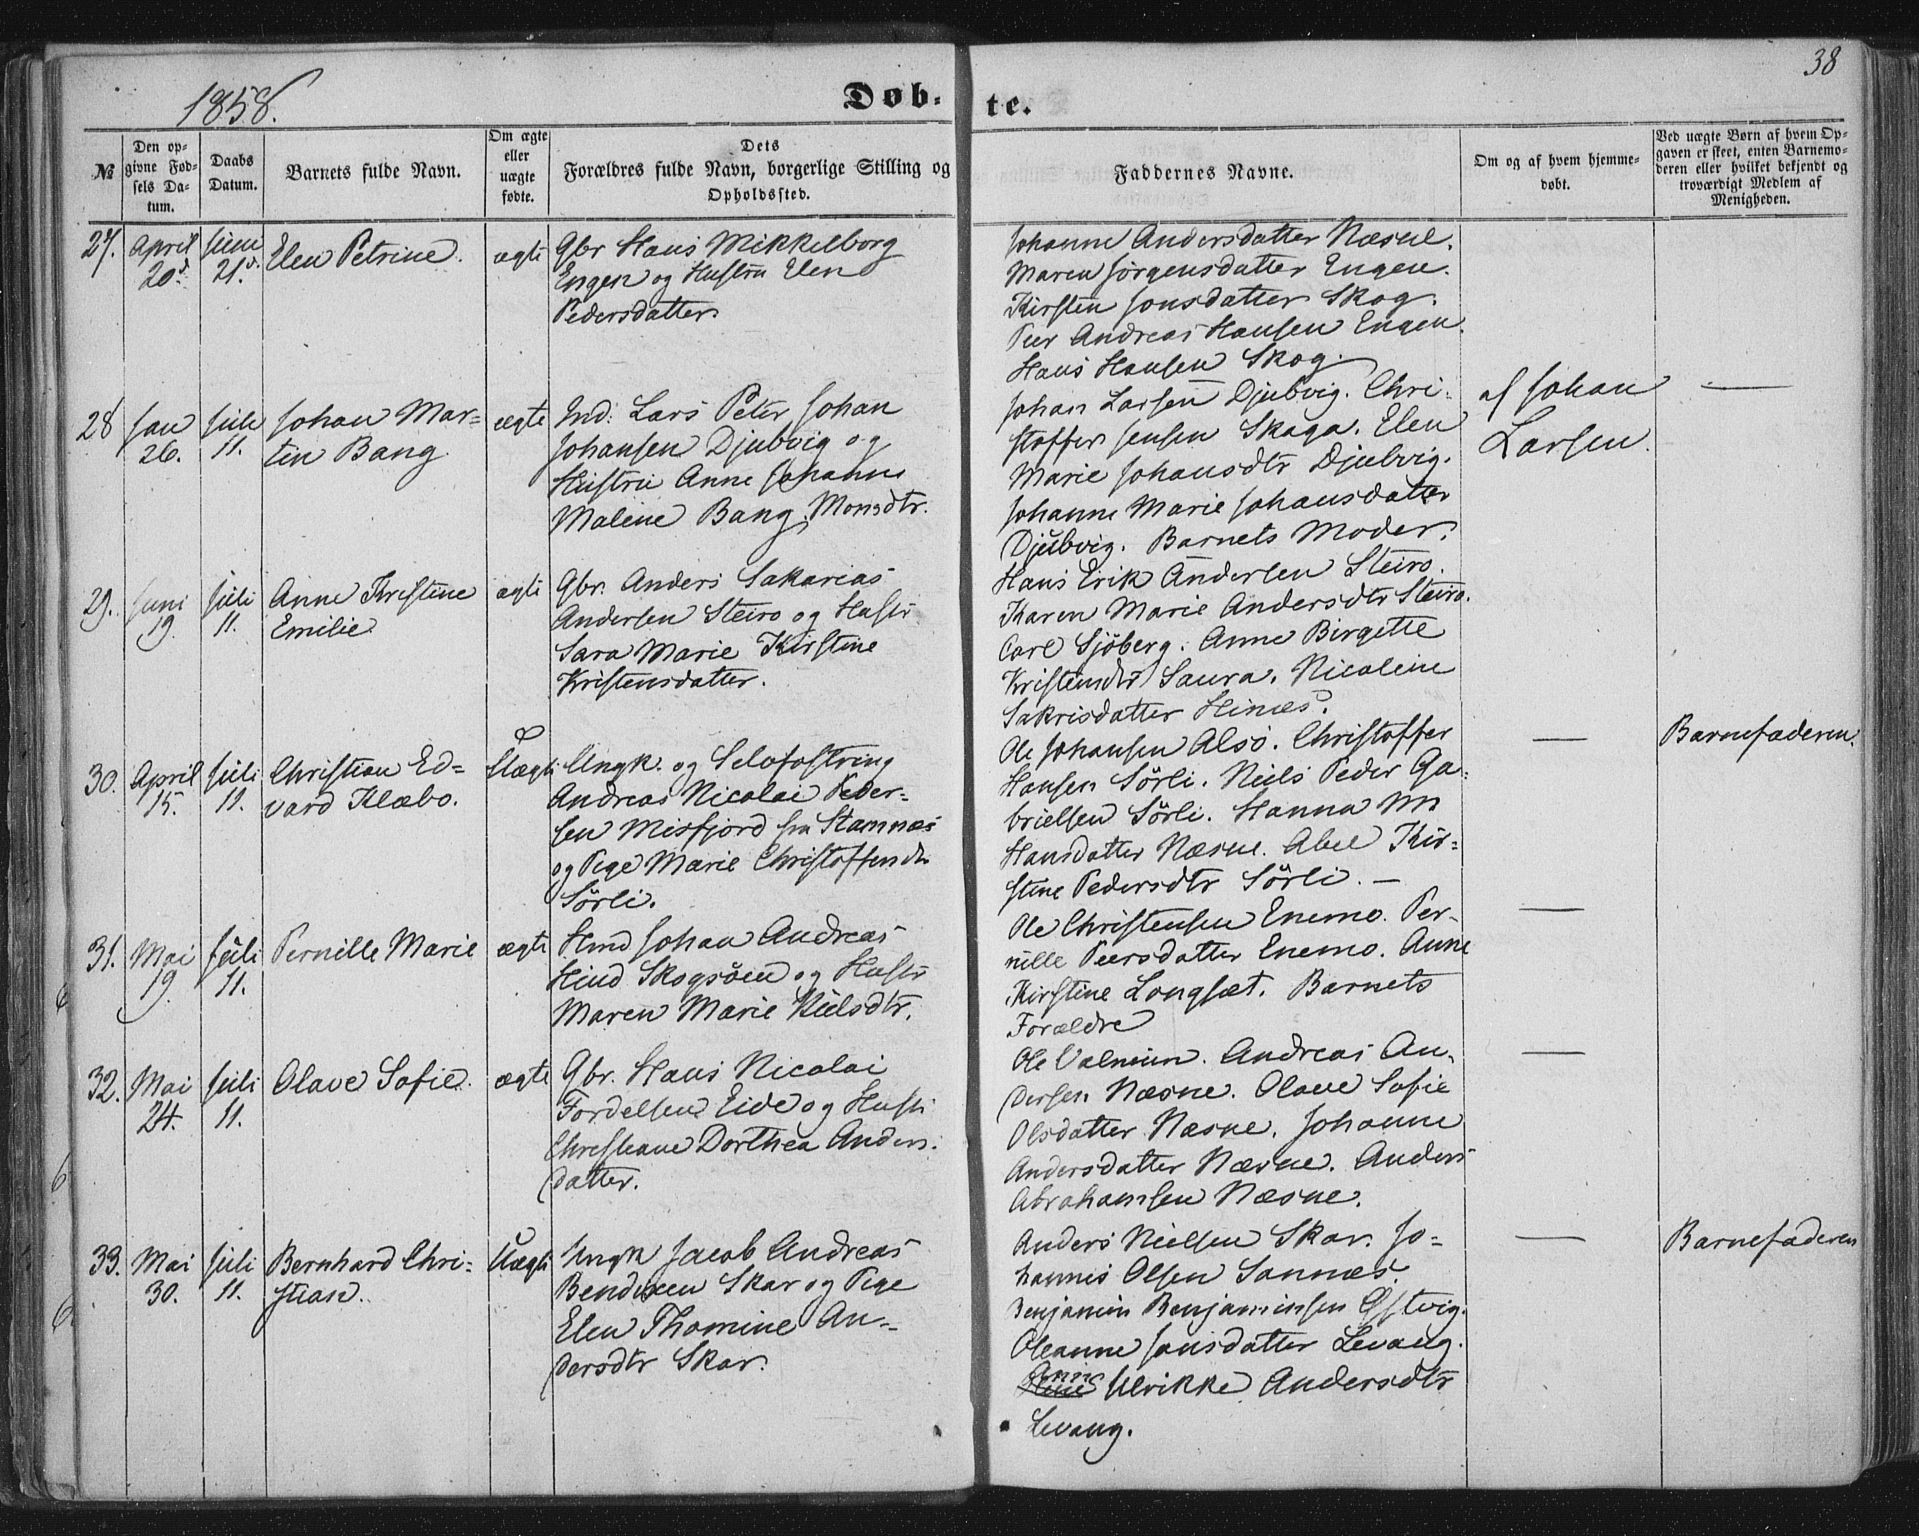 38
1858.
Døb-
te.
№
Den op-
givne Fød-
sels Da-
tum.
Daabs
Datum.
Barnets fulde Navn.
Om ægte
eller
uægte
fødte.
Dets
Forældres fulde Navn, borgerlige Stilling og
Opholdssted.
Faddernes Navne.
Om og af hvem hjemme-
døbt.
Ved uægte Børn af hvem Op-
gaven er skeet, enten Barnemo-
deren eller hvilket bekjendt og
troværdigt Medlem af
Menigheden.
27.
April
20d.
Juni
21d.
Elen Petrine.
ægte
Gbr Hans Mikkelborg
Engen og Hustru Elen
Pedersdatter
Johanne Andersdatter Næsne.
Maren Jørgensdatter Engen.
Kirsten Jonsdatter Skog.
Peer Andreas Hansen Engen.
Hans Hansen Skog.
28
Jan
26.
Juli
11.
Johan Mar-
tin Bang
ægte
Ind: Lars Peter Johan
Johansen Djubvig og
Hustru Anne Johanne
Malene Bang, Monsdtr.
Johan Larsen Djubvig. Chri-
stoffer Jensen Skaga. Elen
Marie Johansdtr Djubvig.
Johanne Marie Johansdatter
Djubvig. Barnets Moder.
af Johan
Larsen.
—
29.
Juni
19.
Juli
11.
Anne Kristine
Emilie
ægte
Gbr. Anders Sakarias
Andersen Steiro og Hustr
Sara Marie Kirstine
Kristensdatter.
Hans Erik Andersen Steiro.
Karen Marie Andersdtr Steiro.
Carl Sjöberg. Anne Birgette
Kristensdtr Saura. Nicoline
Sakrisdatter Hines.
30.
April
15.
Juli
11.
Christian Ed-
vard Klæbo.
Uægte
Ungk. og Selvfostring
Andreas Nicolai Peder-
sen Misfjord fra Stamnæs
og Pige Marie Christoffersdr
Sörli.
Ole Johansen Alsö. Christoffer
Hansen Sörli. Niels Peder Ga-
brielsen Sörli. Hanna M
Hansdatter Næsne. Abel Kir-
stine Pedersdtr Sörli. —
—
Barnefaderen.
31.
Mai
19.
Juli
11.
Pernille Marie
ægte
Hmd Johan Andreas
Hind Skogsöen og Hustr
Maren Marie Nielsdtr.
Ole Christensen Enemo. Per-
nille Peersdatter Enemo. Anne
Kirstine Longset. Barnets
Forældre
—
32.
Mai
24.
Juli
11.
Olave Sofie.
ægte
Gbr. Hans Nicolai
Fordelsen Eide og Hustr
Christiane Dorthea Anders-
datter.
Ole Andreas An-
dersen Næsne. Olave Sofie
Olsdatter Næsne. Johanne
Andersdatter Næsne. Anders
Abrahamsen Næsne.
—
33.
Mai
30.
Juli
11.
Bernhard Chri-
stian.
Uægte
Ungk Jacob Andreas
Bendixen Skar og Pige
Elen Thomine An-
dersdtr Skar.
Anders Nielsen Skar. Jo-
hannes Olsen Sannæs.
Benjamin Benjaminsen Östvig.
Oleanne Jonsdatter Levang.
Ulrikke Andersdtr
Levang.
—
Barnefaderen